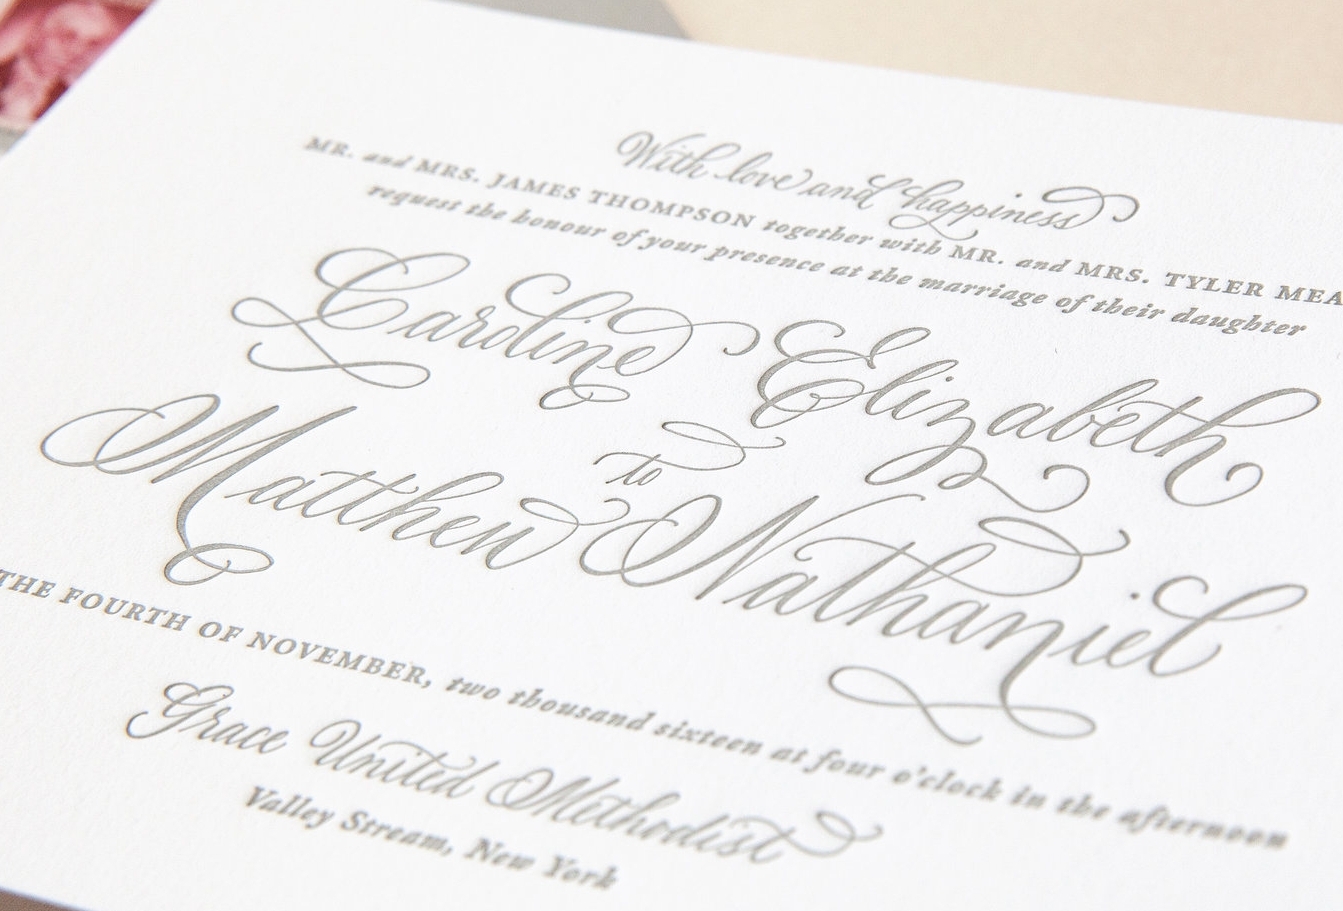 With love and happiness
MR. and MRS. JAMES THOMPSON together with MR. and MRS. TYLER MEA
request the honour of your presence at the marriage of their daughter
Caroline Elizabeth
to
Matthew Nathaniel
THE FOURTH OF NOVEMBER, two thousand sixteen at four o'clock in the afternoon
Grace United Methodist
Valley Stream, New York